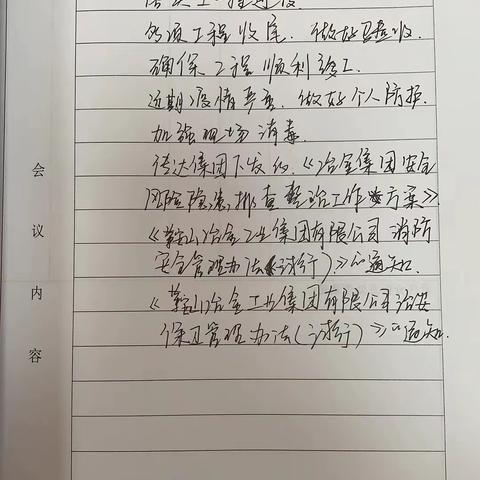 各项工程收尾. 做好验收.
确保工程顺利竣工.
近期疫情严重. 做好个人防护.
加强现场消毒.
传达集团下发的.《冶金集团安全
风险隐患排查整治工作方案》.
《鞍山冶金工业集团有限公司消防
安全管理办法(试行)》的通知.
《鞍山冶金工业集团有限公司治安
保卫管理办法(试行)》的通知.
会议内容